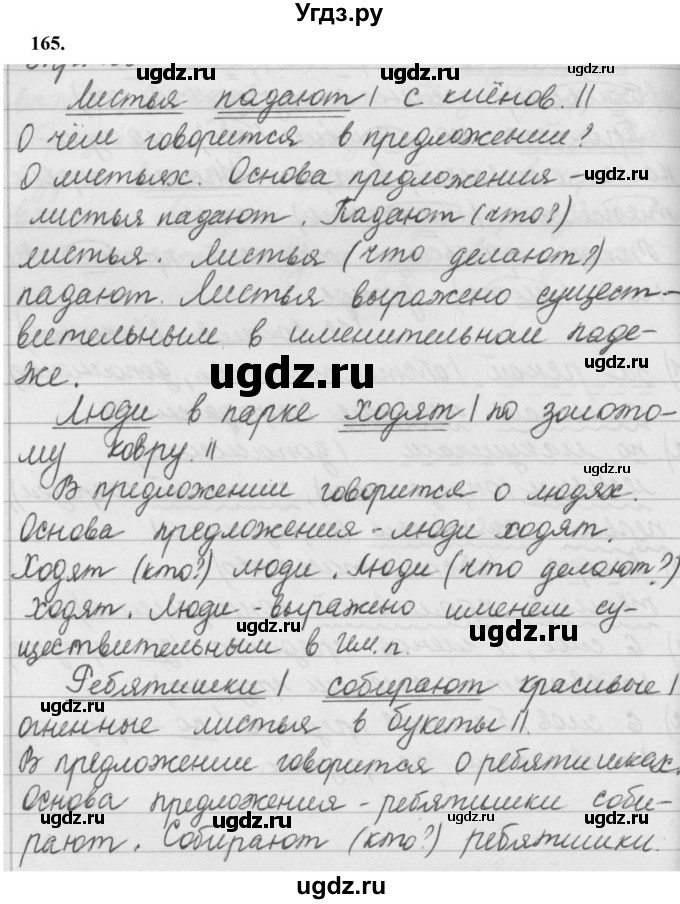 Угдз.ру
165.
Листья падают | с клёнов. ||
О чём говорится в предложении?
О листьях. Основа предложения -
листья падают. Падают (что?)
листья. Листья (что делают?)
падают. Листья выражено сущест-
вительным в именительном паде-
же.
Люди в парке ходят | по золото-
му ковру. ||
В предложении говорится о людях.
Основа предложения - люди ходят.
Ходят (кто?) люди. Люди (что делают?)
ходят. Люди - выражено именем су-
ществительным в Им. п.
Ребятишки | собирают красивые |
огненные листья в букеты ||.
В предложении говорится о ребятишках.
Основа предложения - ребятишки соби-
рают. Собирают (кто?) ребятишки.
ugdz.ru